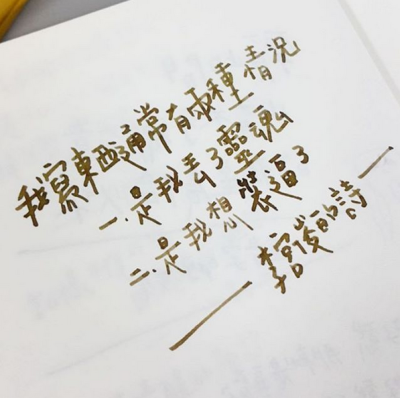 我寫東西通常有兩種情況
一.是我丟了靈魂
二.是我想裝逼了
—— 的詩 ——